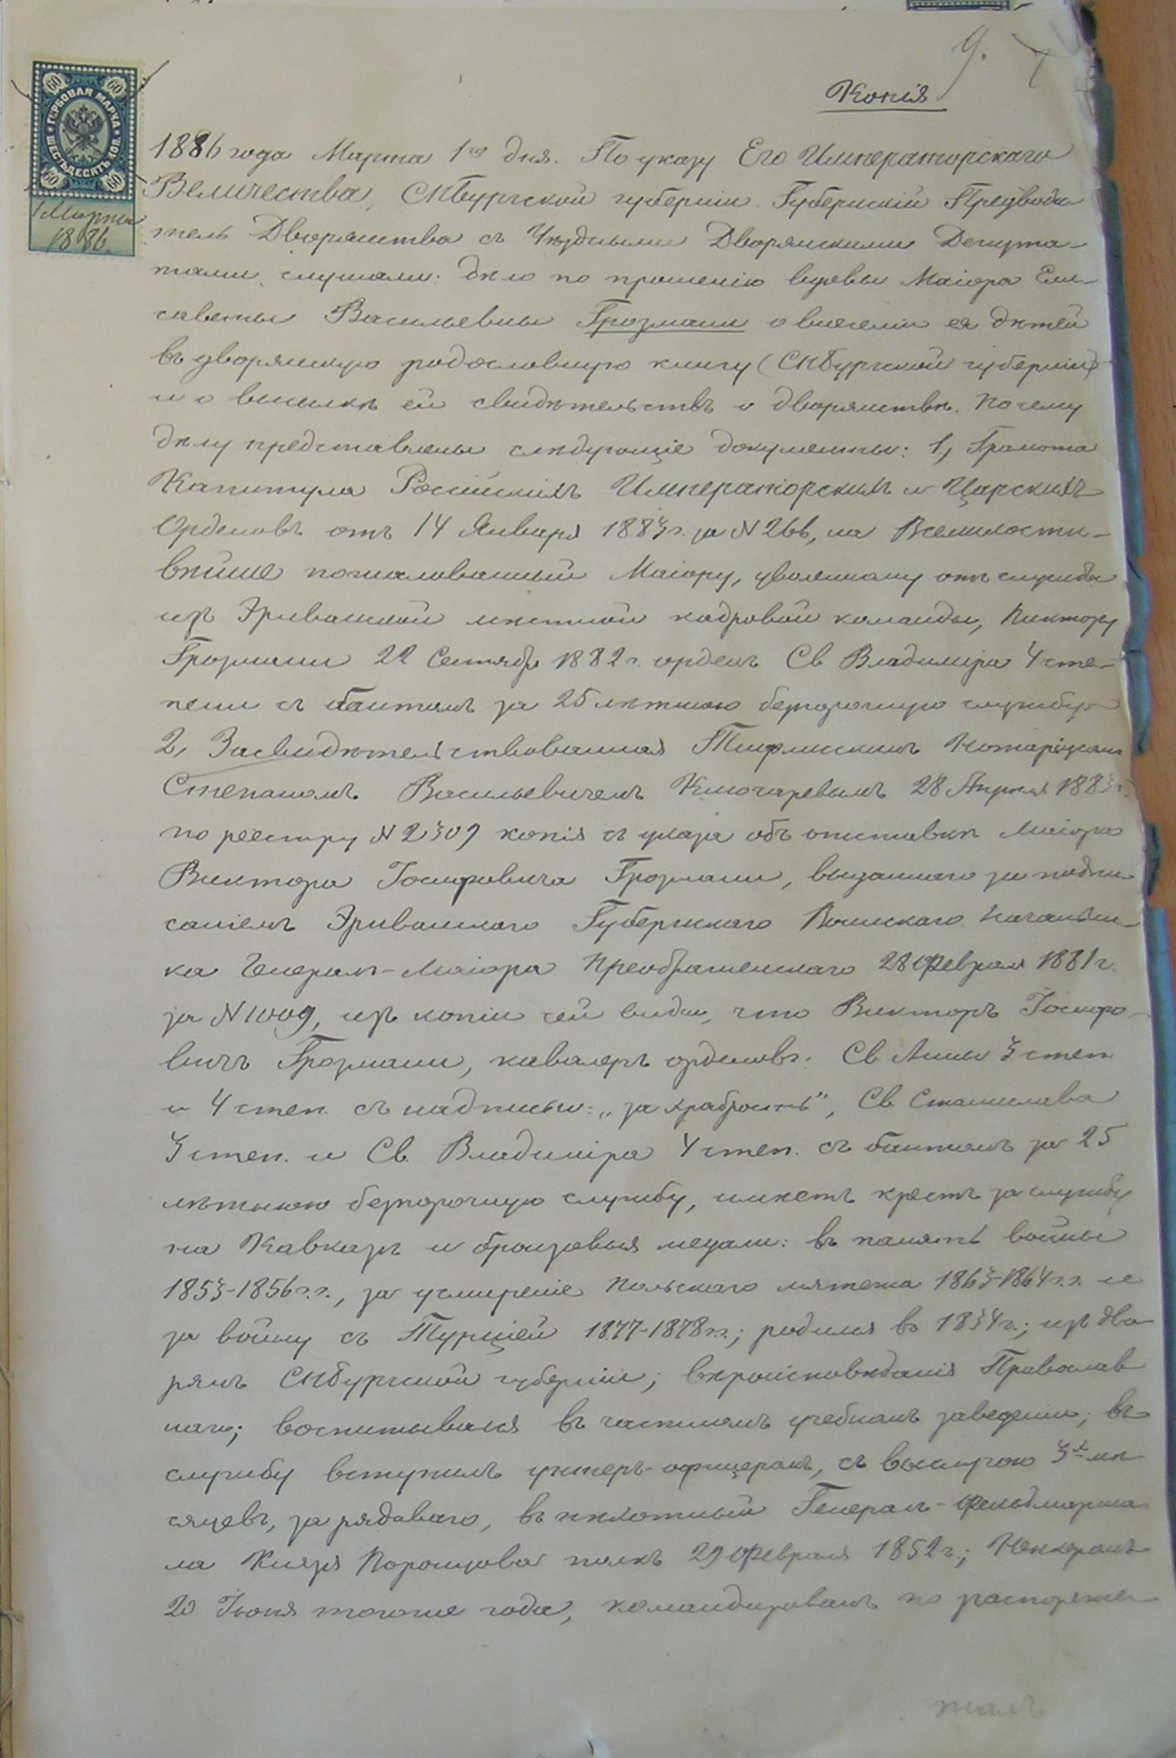 9.
Копія
60 60
ГЕРБОВАЯ МАРКА
ШЕСТЬДЕСЯТЪ КОП.
60 60
1 Марта
1886
1886 года Марта 1го дня. По указу Его Императорскаго
Величества, СПбургской губерніи Губернскій Предводи-
тель Дворянства съ Уѣздными Дворянскими Депута-
тами слушали: дѣло по прошенію вдовы Маіора Ели-
саветы Васильевны Грозмани о внесеніи ея дѣтей
въ дворянскую родословную книгу (СПбургской губерніи)
и о высылкѣ ей свидѣтельствъ о дворянствѣ. По сему
дѣлу представлены слѣдующіе документы: 1, Грамота
Капитула Россійскихъ Императорскихъ и Царскихъ
Орденовъ отъ 14 Января 1883 г. за N 266, на Всемилости-
вѣйше пожалованный Маіору, уволенному отъ службы
изъ Эриванской мѣстной кадровой команды, Виктору
Грозмани 22 Сентября 1882 г. орденъ Св Владиміра 4 сте-
пени съ бантомъ за 25 лѣтнюю безпорочную службу
2, Засвидѣтельствованная Тифлисскимъ Нотаріусомъ
Степаномъ Васильевичемъ Ключаревымъ 28 Апрѣля 1883 г.
по реестру N 2309 копія съ указа объ отставкѣ Маіора
Виктора Іосифовича Грозмани, выданнаго за подпи
саніемъ Эриванскаго Губернскаго Воинскаго Начальни-
ка Генералъ-Маіора Преображенскаго 28 Февраля 1881 г.
за N 1009, изъ копіи сей видно, что Викторъ Іосифо-
вичъ Грозмани, кавалеръ орденовъ: Св Анны 3 степ
и 4 степ. съ надписью: „за храбрость", Св. Станислава
3 степ. и Св. Владиміра 4 степ. съ бантомъ за 25
лѣтнюю безпорочную службу, имѣетъ крестъ за службу
на Кавказѣ и бронзовыя медали: въ память войны
1853-1856 г.г., за усмиреніе Польскаго мятежа 1863-1864 г.г. и
за войну съ Турціей 1877-1878 гг.; родился въ 1834 г.; изъ дво
рянъ СПбургской губерніи; вѣроисповѣданія Православ
наго; воспитывался въ частномъ учебномъ заведеніи; въ
службу вступилъ унтеръ-офицеромъ, съ выслугою 3х мѣ
сяцевъ, за рядоваго, въ пѣхотный Генералъ-Фельдмарша
ла Князя Воронцова полкъ 29 Февраля 1852 г.; Юнкеромъ
20 Іюня того же года, командированъ по распоряже